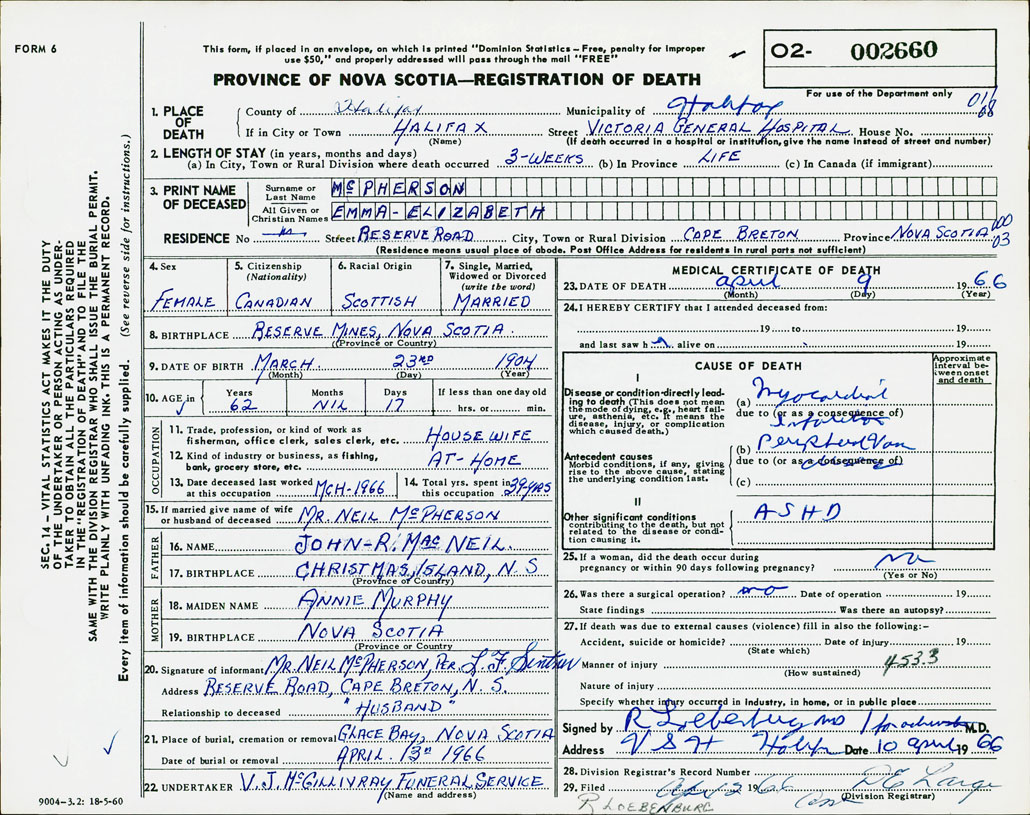 FORM 6
This form, if placed in an envelope, on which is printed "Dominion Statistics – Free, penalty for improper
use $50," and properly addressed will pass through the mail "FREE"
PROVINCE OF NOVA SCOTIA—REGISTRATION OF DEATH
O2- 002660
For use of the Department only
1. PLACE OF DEATH
County of Halifax Municipality of Halifax
If in City or Town HALIFAX Street VICTORIA GENERAL HOSPITAL House No.
(Name) (If death occurred in a hospital or institution, give the name instead of street and number)
2. LENGTH OF STAY (in years, months and days)
(a) In City, Town or Rural Division where death occurred 3-WEEKS (b) In Province LIFE (c) In Canada (if immigrant)
3. PRINT NAME OF DECEASED
Surname or Last Name McPHERSON
All Given or Christian Names EMMA-ELIZABETH
RESIDENCE No Street RESERVE ROAD City, Town or Rural Division CAPE BRETON Province NOVA SCOTIA
(Residence means usual place of abode. Post Office Address for residents in rural parts not sufficient)
4. Sex FEMALE
5. Citizenship (Nationality) CANADIAN
6. Racial Origin SCOTTISH
7. Single, Married, Widowed or Divorced (write the word) MARRIED
8. BIRTHPLACE RESERVE MINES, NOVA SCOTIA.
(Province or Country)
9. DATE OF BIRTH MARCH 23RD 1904
(Month) (Day) (Year)
10. AGE in Years 62 Months NIL Days 17 If less than one day old hrs. or min.
OCCUPATION
11. Trade, profession, or kind of work as
fisherman, office clerk, sales clerk, etc. HOUSE WIFE
12. Kind of industry or business, as fishing,
bank, grocery store, etc. AT-HOME
13. Date deceased last worked
at this occupation MCH-1966
14. Total yrs. spent in
this occupation 39-YRS
15. If married give name of wife
or husband of deceased MR. NEIL McPHERSON
FATHER
16. NAME JOHN-R. MacNEIL.
17. BIRTHPLACE CHRISTMAS, ISLAND, N.S
(Province or Country)
MOTHER
18. MAIDEN NAME ANNIE MURPHY
19. BIRTHPLACE NOVA SCOTIA
(Province or Country)
20. Signature of informant MR. NEIL McPHERSON, PER.
Address RESERVE ROAD, CAPE BRETON, N.S.
Relationship to deceased "HUSBAND"
21. Place of burial, cremation or removal GLACE BAY, NOVA SCOTIA
Date of burial or removal APRIL. 13th 1966
22. UNDERTAKER V.J. McGILLIVRAY FUNERAL SERVICE
(Name and address)
MEDICAL CERTIFICATE OF DEATH
23. DATE OF DEATH april 9 1966
(Month) (Day) (Year)
24. I HEREBY CERTIFY that I attended deceased from:
19 to 19
and last saw h alive on 19
CAUSE OF DEATH
Approximate interval between onset and death
I
Disease or condition directly leading to death (This does not mean the mode of dying, e.g., heart failure, asthenia, etc. It means the disease, injury, or complication which caused death.)
(a) Myocardial
due to (or as a consequence of)
Infarction
Antecedent causes
Morbid conditions, if any, giving rise to the above cause, stating the underlying condition last.
(b) Peripheral Vas
due to (or as a consequence of)
(c)
II
Other significant conditions
contributing to the death, but not related to the disease or condition causing it.
ASHD
25. If a woman, did the death occur during
pregnancy or within 90 days following pregnancy? no
(Yes or No)
26. Was there a surgical operation? no Date of operation 19
State findings Was there an autopsy?
27. If death was due to external causes (violence) fill in also the following:-
Accident, suicide or homicide? Date of injury 19
(State which)
Manner of injury 453.3
(How sustained)
Nature of injury
Specify whether injury occurred in industry, in home, or in public place
Signed by R Loebenburg M.D.
Address V G H Halifax Date 10 april 1966
28. Division Registrar's Record Number
29. Filed 1966
(Division Registrar)
R LOEBENBURG
SEC. 14 – VITAL STATISTICS ACT MAKES IT THE DUTY
OF THE UNDERTAKER OR PERSON ACTING AS UNDERTAKER
TO OBTAIN ALL THE PARTICULARS REQUIRED
IN THE "REGISTRATION OF DEATH" AND TO FILE THE
SAME WITH THE DIVISION REGISTRAR WHO SHALL ISSUE THE BURIAL PERMIT.
WRITE PLAINLY WITH UNFADING INK. THIS IS A PERMANENT RECORD.
Every item of information should be carefully supplied. (See reverse side for instructions.)
9004–3.2: 18-5-60